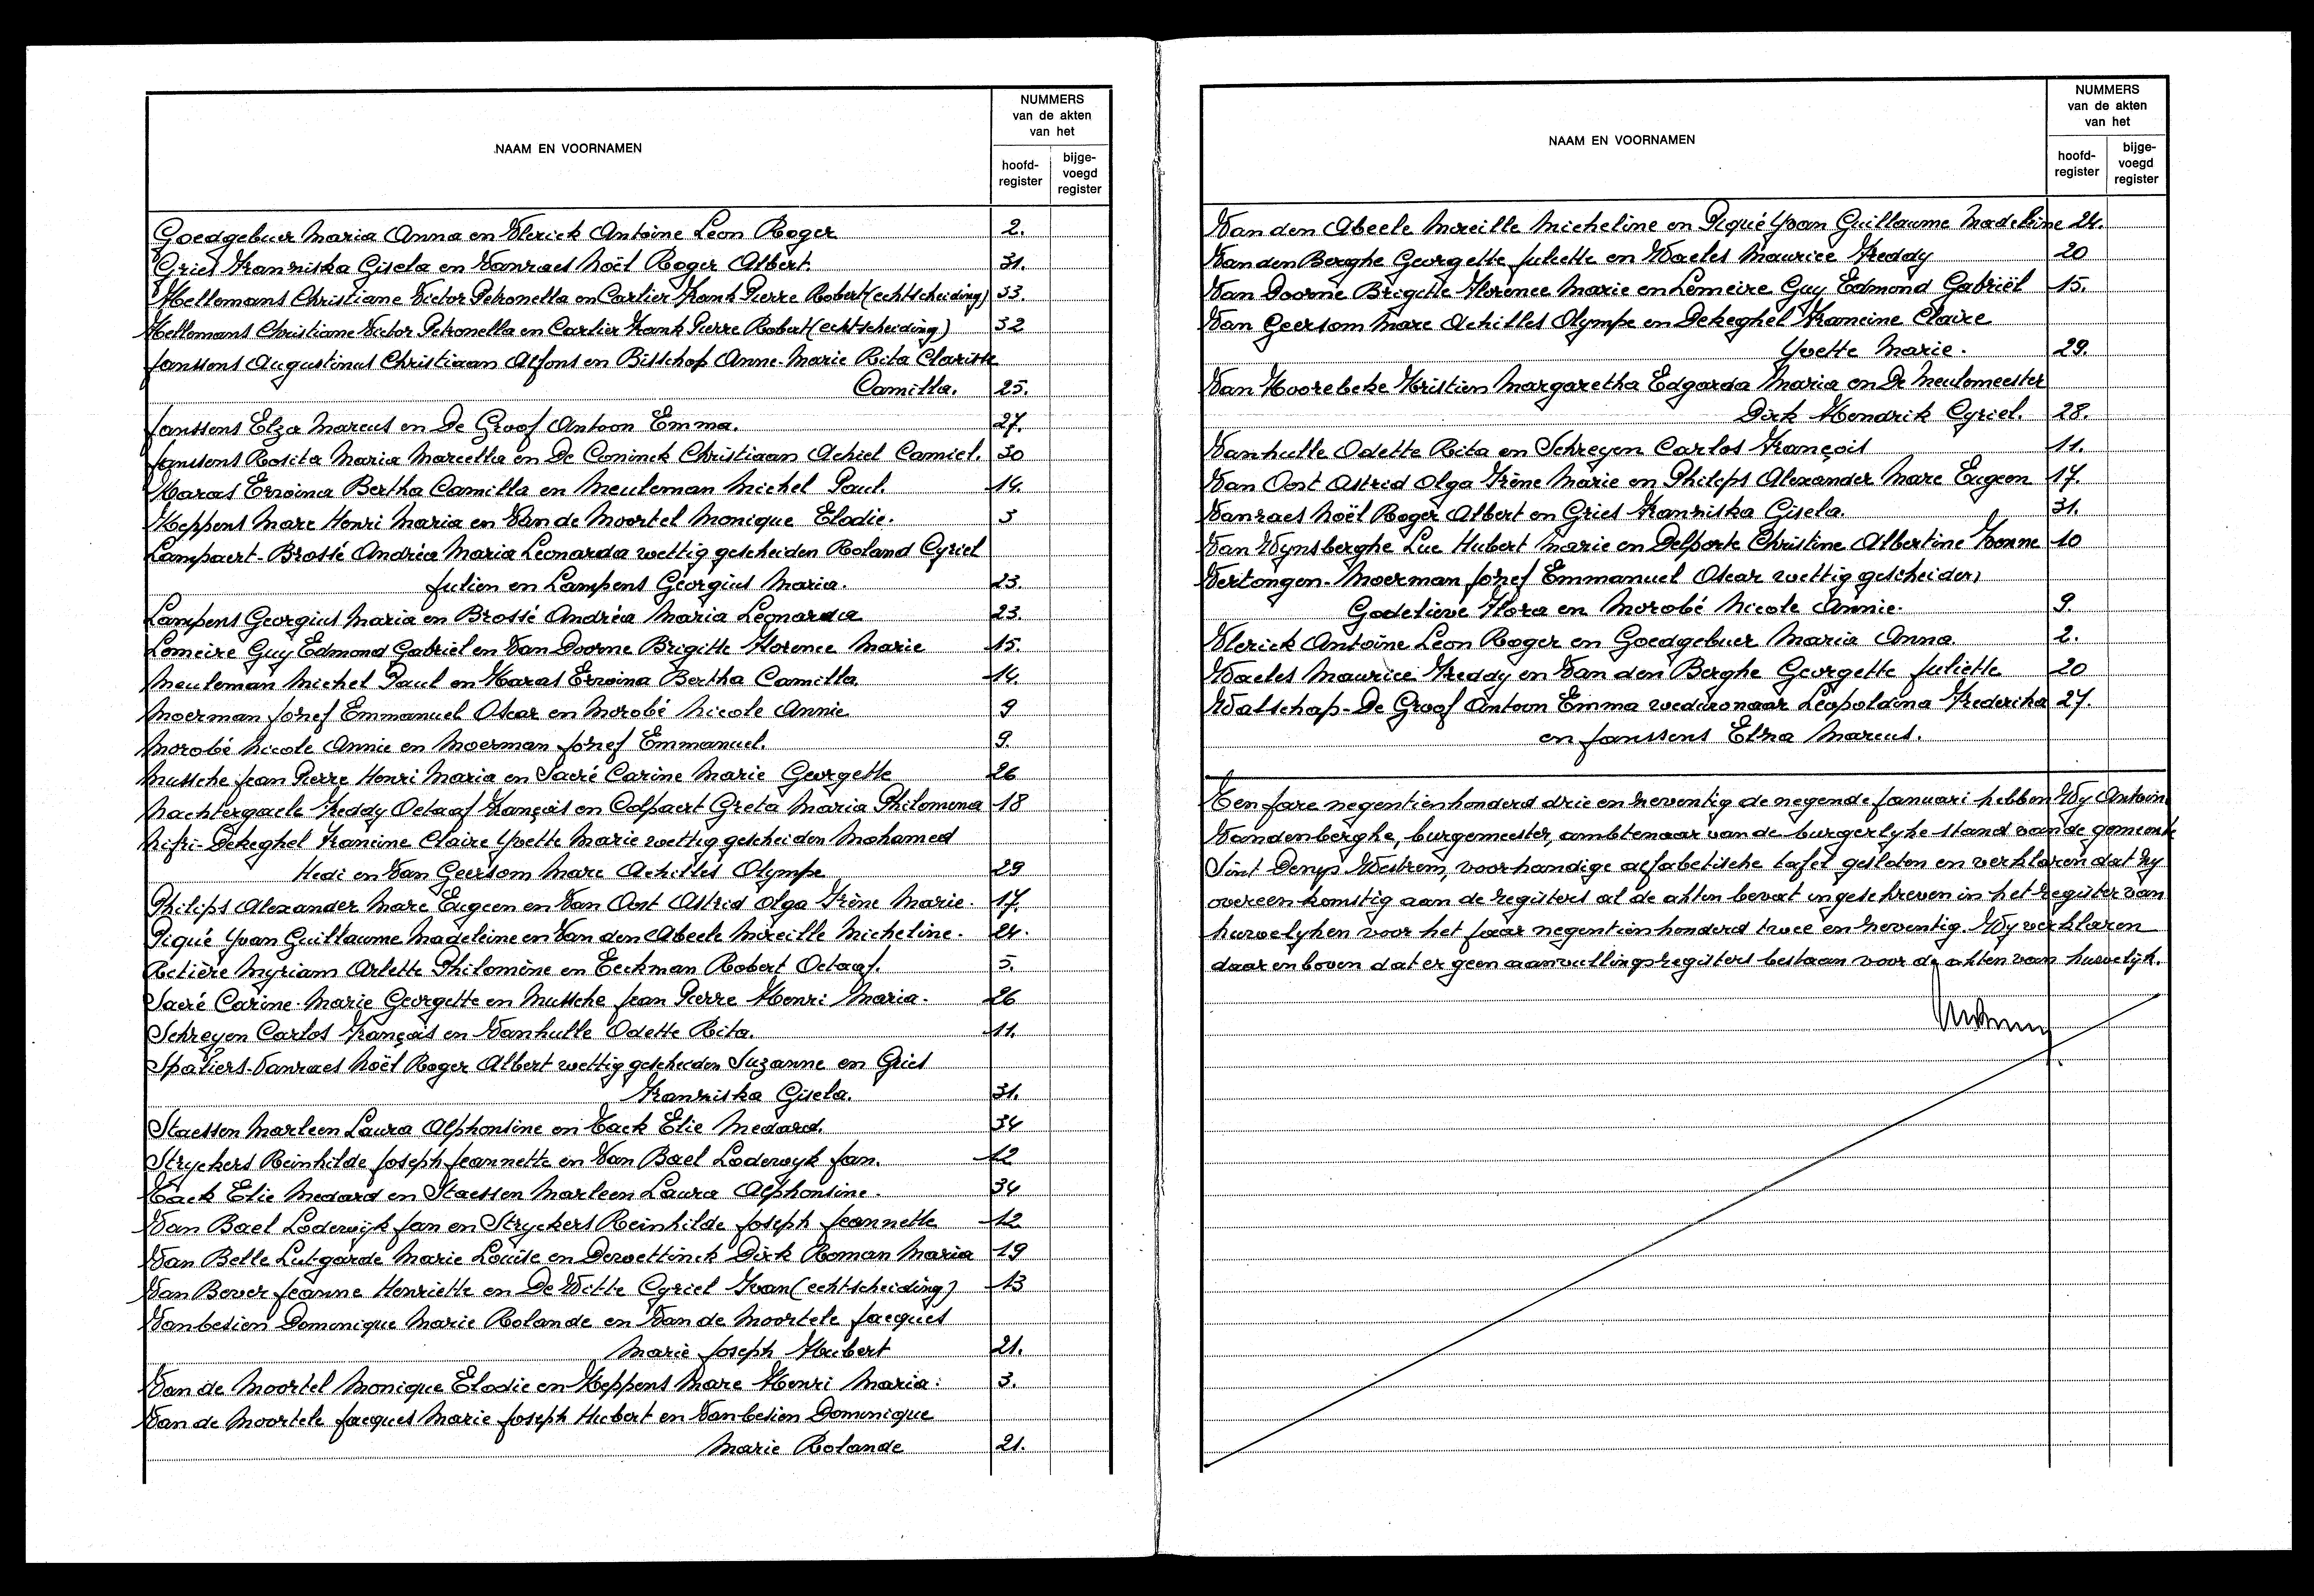 NAAM EN VOORNAMEN
NUMMERS
van de akten
van het
hoofd-
register
bijge-
voegd
register
Goedgebuer Maria Anna en Vlerick Antoine Leon Roger 2.
Gries Franziska Gisela en Vanraes Noël Roger Albert. 31.
Hellemans Christiane Victor Petronella en Carlier Frank Pierre Robert (echtscheiding) 33.
Hellemans Christiane Victor Petronella en Carlier Frank Pierre Robert (echtscheiding) 32
Janssens Augustinus Christiaan Alfons en Bisschop Anne-Marie Rita Clarisse
Camilla. 25.
Janssens Elza Marcus en De Groof Antoon Emma. 27.
Janssens Rosita Maria Marcella en De Coninck Christiaan Achiel Camiel. 30
Karas Erwina Bertha Camilla en Meuleman Michel Paul. 14.
Keppens Marc Henri Maria en Van de Moortel Monique Elodie. 3
Lampaert-Brossé Andréa Maria Leonarda wettig gescheiden Roland Cyriel
Julien en Lampens Georgius Maria. 23.
Lampens Georgius Maria en Brossé Andréa Maria Leonarda 23.
Lemeire Guy Edmond Gabriel en Van Doorne Brigitte Florence Marie 15.
Meuleman Michel Paul en Karas Erwina Bertha Camilla. 14.
Moerman Jozef Emmanuel Oscar en Morobé Nicole Annie 9
Morobé Nicole Annie en Moerman Jozef Emmanuel. 9.
Mussche Jean Pierre Henri Maria en Sacré Carine Marie Georgette 26
Nachtergaele Freddy Octaaf François en Colpaert Greta Maria Philomena 18
Nifri-Dekeghel Francine Claire Yvette Marie wettig gescheiden Mohamed
Hedi en Van Geersom Marc Achilles Olympe 29
Philips Alexander Marc Eugeen en Van Oost Astrid Olga Irène Marie. 17.
Piqué Yvan Guillaume Madeleine en Van den Abeele Mireille Micheline. 24.
Retière Myriam Arlette Philomène en Eeckman Robert Octaaf. 5.
Sacré Carine Marie Georgette en Mussche Jean Pierre Henri Maria. 26
Schreyen Carlos François en Vanhulle Odette Rita. 11.
Spaliers-Vanraes Noël Roger Albert wettig gescheiden Suzanne en Gries
Franziska Gisela. 31.
Staessen Marleen Laura Alphonsine en Tack Elie Medard. 34
Stryckers Reinhilde Joseph Jeannette en Van Bael Lodewyk Jan. 12
Tack Elie Medard en Staessen Marleen Laura Alphonsine. 34
Van Bael Lodewijk Jan en Stryckers Reinhilde Joseph Jeannette 12
Van Belle Lutgarde Marie Louise en Dewettinck Dirk Roman Maria 19
Van Bever Jeanne Henriette en De Witte Cyriel Yvan (echtscheiding) 13
Vanbesien Dominique Marie Rolande en Van de Moortele Jacques
Marie Joseph Hubert 21.
Van de Moortel Monique Elodie en Keppens Marc Henri Maria. 3.
Van de Moortele Jacques Marie Joseph Hubert en Vanbesien Dominique
Marie Rolande 21.
NAAM EN VOORNAMEN
NUMMERS
van de akten
van het
hoofd-
register
bijge-
voegd
register
Van den Abeele Mireille Micheline en Piqué Yvan Guillaume Madeleine 24.
Van den Berghe Georgette Juliette en Waeles Maurice Freddy 20
Van Doorne Brigitte Florence Marie en Lemeire Guy Edmond Gabriël 15.
Van Geersom Marc Achilles Olympe en Dekeghel Francine Claire
Yvette Marie. 29.
Van Hoorebeke Kristien Margaretha Edgarda Maria en De Meulemeester
Dirk Hendrik Cyriel. 28.
Vanhulle Odette Rita en Schreyen Carlos François 11.
Van Oost Astrid Olga Irène Marie en Philips Alexander Marc Eugeen 17.
Vanraes Noël Roger Albert en Gries Franziska Gisela. 31.
Van Wynsberghe Luc Hubert Marie en Delporte Christine Albertine Yvonne 10
Vertongen-Moerman Jozef Emmanuel Oscar wettig gescheiden
Godelieve Flora en Morobé Nicole Annie. 9.
Vlerick Antoine Leon Roger en Goedgebuer Maria Anna. 2.
Waeles Maurice Freddy en Van den Berghe Georgette Juliette 20
Watschap-De Groof Antoon Emma weduwnaar Leopoldina Frederika 27.
en Janssens Elza Marcus.
Ten jare negentienhonderd drie en neventig de negende januari hebben Wy Antoin
Vandenberghe, burgemeester, ambtenaar van de burgerlyke stand van de gemeente
Sint Denys Westrem, voorhandige alfabetische tafel gesloten en verklaren dat zy
overeenkomstig aan de registers al de akten bevat ingeschreven in het register van
huwelyken voor het jaar negentienhonderd twee en neventig. Wy verklaren
daarenboven dat er geen aanvullingsregisters bestaan voor de akten van huwelijk.